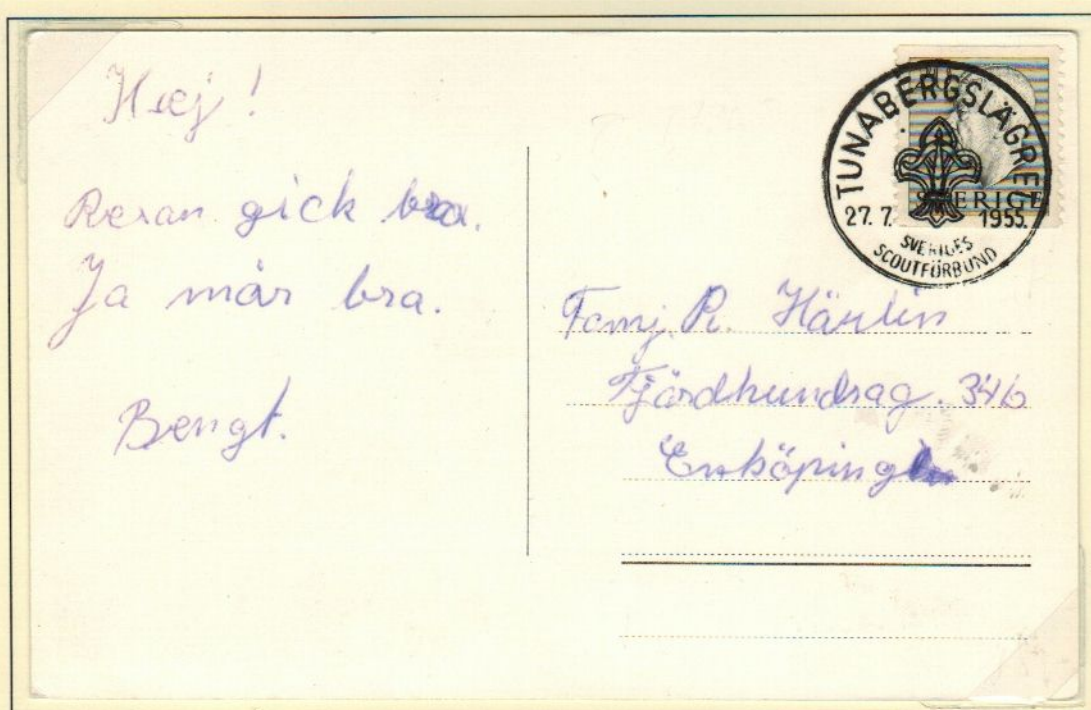 Hej!
Resan gick bra.
Ja mår bra.
Bengt.
TUNABERGSLÄGRET
27. 7. 1955.
SVERIGES
SCOUTFÖRBUND
SVERIGE
Famj. R. Härlin
Fjärdhundrag. 34b
Enköping